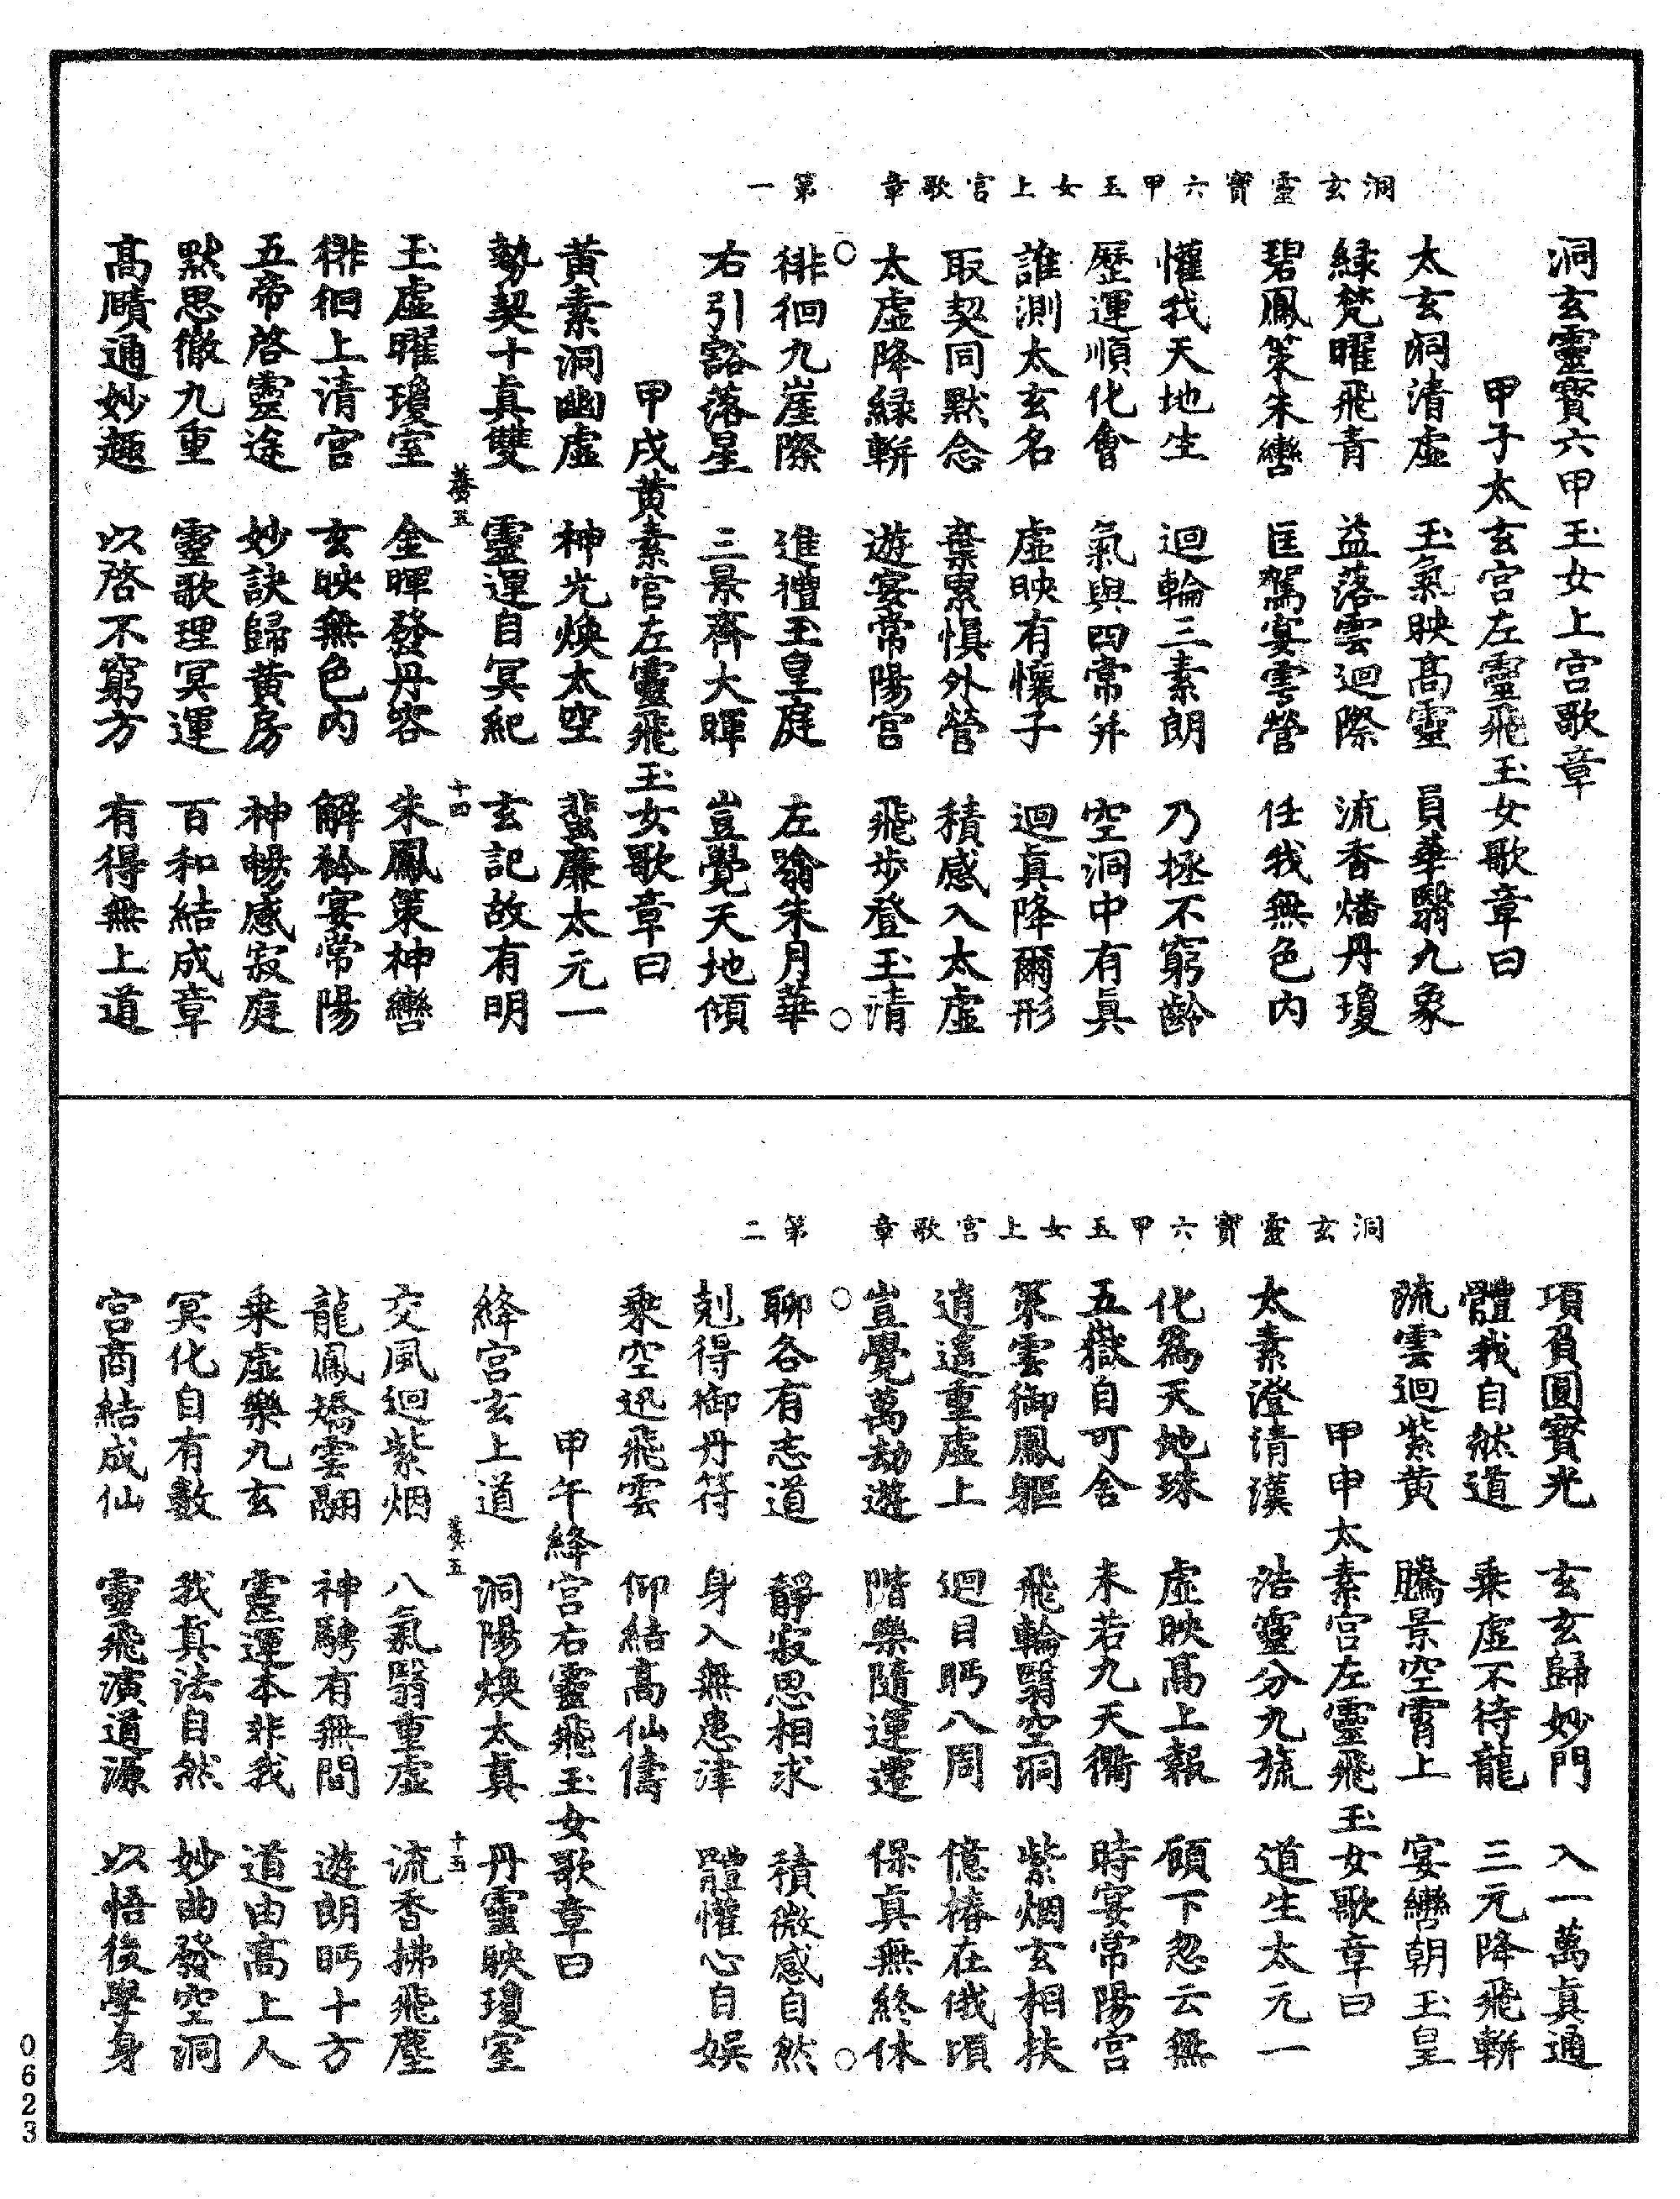 洞玄靈寶六甲玉女上宮歌章 第一
洞玄靈寶六甲玉女上宮歌章
甲子太玄宮左靈飛玉女歌章曰
太玄洞清虛 玉氣映高靈 員華翳九象
緑梵曜飛青 益落雲迴際 流香燔丹瓊
碧鳳策朱轡 匡駕宴雲營 任我無色內
懽我天地生 迴輪三素朗 乃拯不窮齡
歷運順化會 氣與四常并 空洞中有眞
誰測太玄名 虛映有懷子 迴眞降爾形
取契同默念 棄累惧外營 積感入太虛
太虛降緑軿 遊宴常陽宮 飛步登玉清
徘徊九崖際 進禮玉皇庭 左瑜朱月華
右引豁落星 三景齊大暉 豈覺天地傾
甲戌黃素宮左靈飛玉女歌章曰
黃素洞幽虛 神光煥太空 蜚廉太元一
勢契十眞雙 靈運自冥紀 玄記故有明
養五 十四
玉虛曜瓊室 金暉發丹容 朱鳳策神轡
徘徊上清宮 玄映無色內 解衿宴常陽
五帝啓靈途 妙訣歸黃房 神暢感寂庭
默思徹九重 靈歌理冥運 百和結成章
高賾通妙趣 以啓不窮方 有得無上道
洞玄靈寶六甲玉女上宮歌章 第二
項負圓寳光 玄玄歸妙門 入一萬眞通
體我自然道 乘虛不待龍 三元降飛軿
流雲迴紫黃 騰景空霄上 宴轡朝玉皇
甲申太素宮左靈飛玉女歌章曰
太素澄清漢 浩靈分九旒 道生太元一
化爲天地珠 虛映高上報 顧下忽云無
五嶽自可舍 未若九天衢 時宴常陽宮
策雲御鳳軀 飛輪翳空洞 紫烟玄相扶
逍遥重虛上 迴目眄八周 億椿在俄頃
豈覺萬劫遊 階樂隨運遷 保眞無終休
聊各有志道 靜寂思相求 積微感自然
剋得御丹符 身入無患津 體懽心自娱
乘空迅飛雲 仰結高仙儔
甲午絳宮右靈飛玉女歌章曰
絳宮玄上道 洞陽煥太眞 丹靈映瓊室
養五 十五
交風迴紫烟 八氣翳重虛 流香拂飛塵
龍鳳矯雲翮 神騁有無間 遊朗眄十方
乘虛樂九玄 靈運本非我 道由高上人
冥化自有數 我眞法自然 妙曲發空洞
宮商結成仙 靈飛演道源 以悟後學身
0623